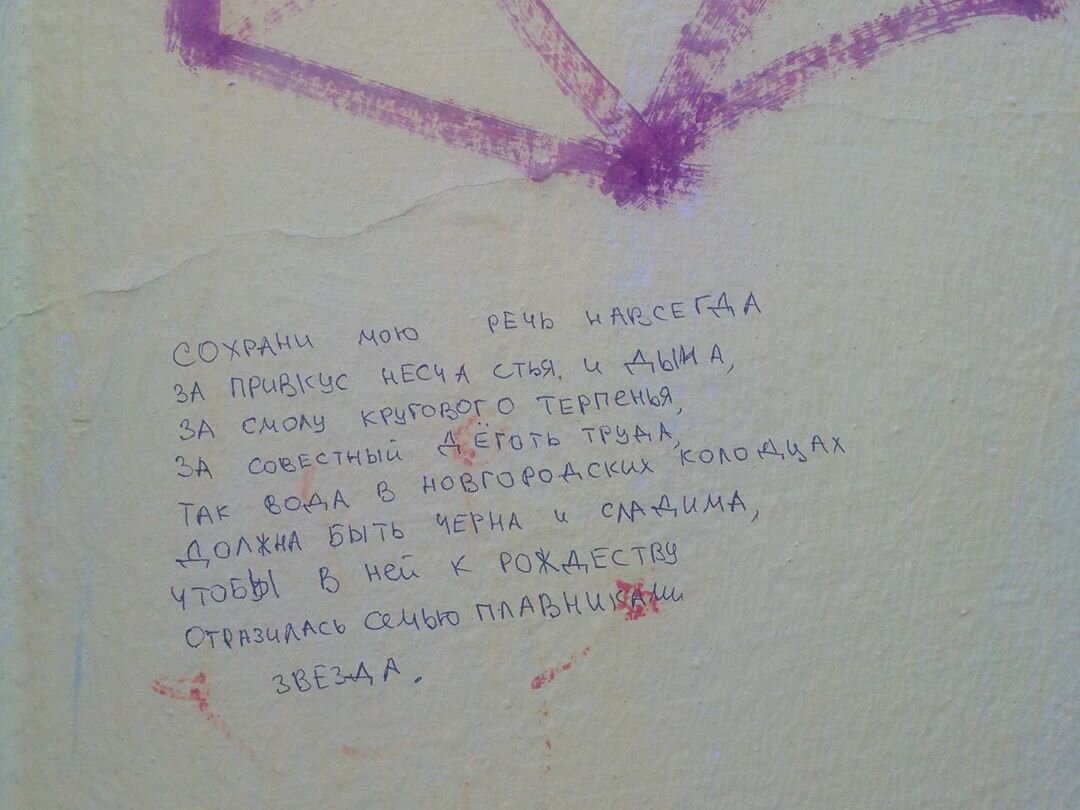 СОХРАНИ МОЮ РЕЧЬ НАВСЕГДА
ЗА ПРИВКУС НЕСЧАСТЬЯ. И ДЫМА,
ЗА СМОЛУ КРУГОВОГО ТЕРПЕНЬЯ,
ЗА СОВЕСТНЫЙ ДЁГОТЬ ТРУДА,
ТАК ВОДА В НОВГОРОДСКИХ КОЛОДЦАХ
ДОЛЖНА БЫТЬ ЧЕРНА И СЛАДИМА,
ЧТОБЫ В НЕЙ К РОЖДЕСТВУ
ОТРАЗИЛАСЬ СЕМЬЮ ПЛАВНИКАМИ
ЗВЕЗДА.